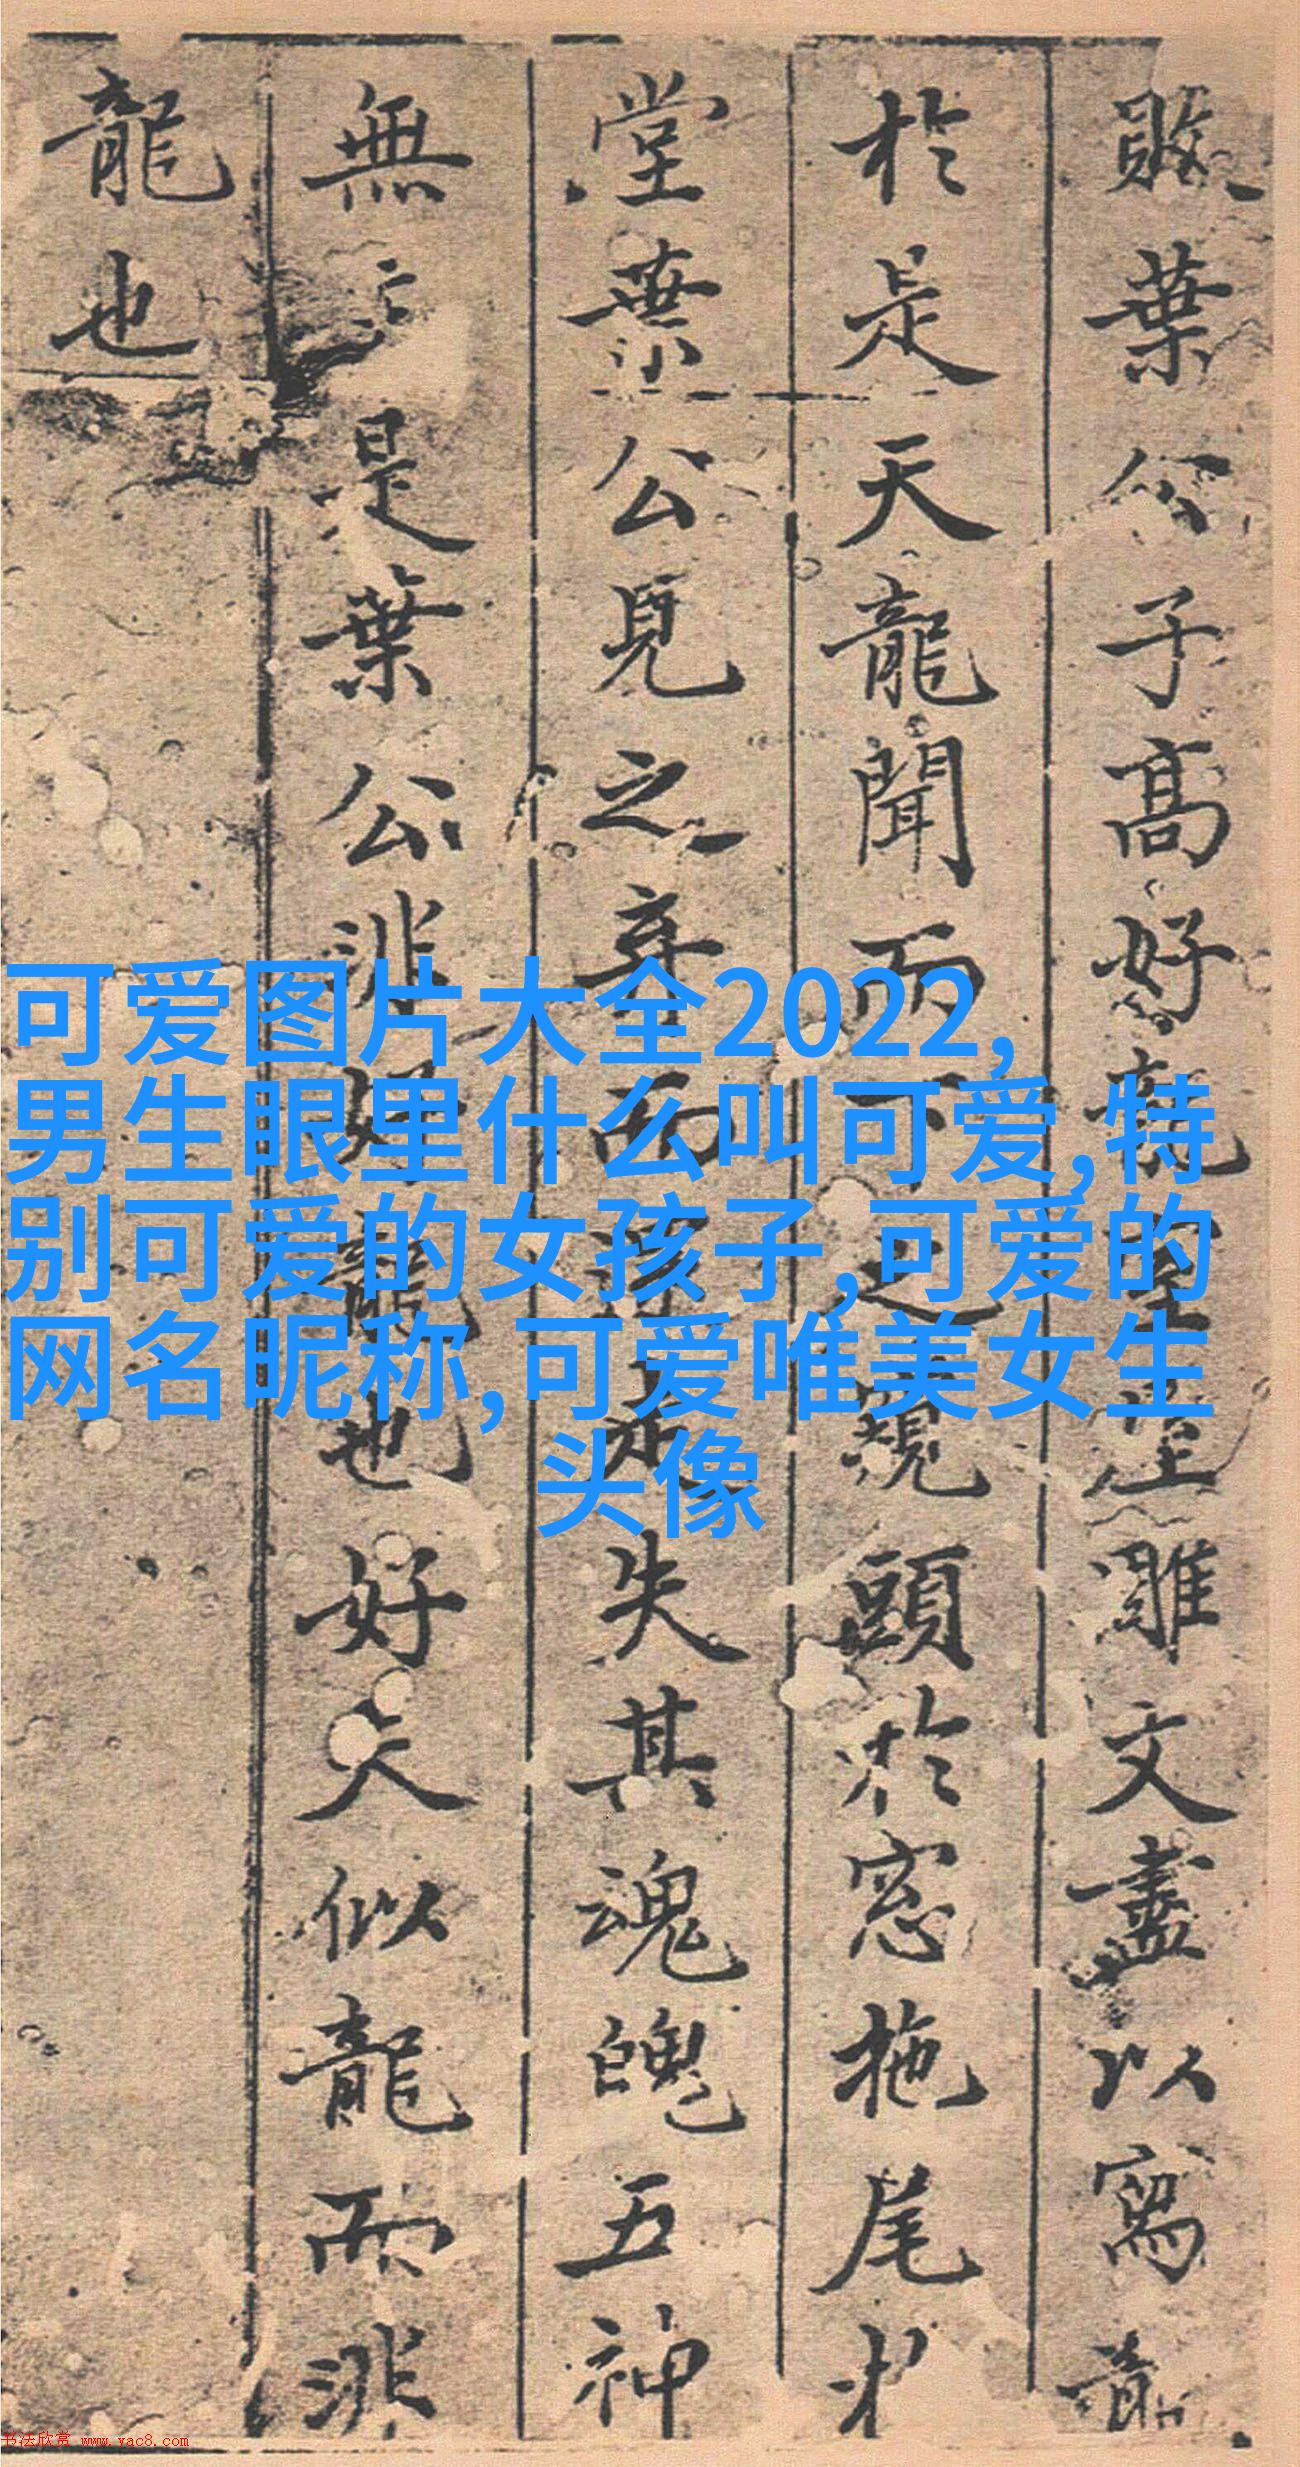 敗葉公子高好龍室雕文盡以寫龍
於是天龍聞而下之窺頭於窓拖尾於
堂葉公見之棄而還走失其魂魄五神
無主是葉公非好龍也好夫似龍而非
龍也
可爱图片大全2022,
男生眼里什么叫可爱,特
别可爱的女孩子,可爱的
网名昵称,可爱唯美女生
头像
书法欣赏 www.yac8.com